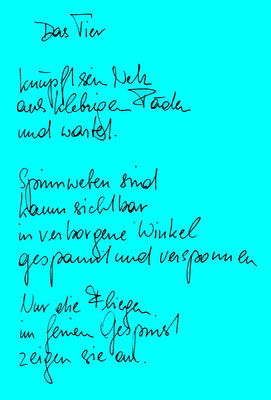 Das Tier
knüpft sein Netz
aus klebrigen Fäden
und wartet.
Spinnweben sind
kaum sichtbar
in verborgene Winkel
gespannt und versponnen
Nur die Fliegen
im feinen Gespinst
zeigen sie an.